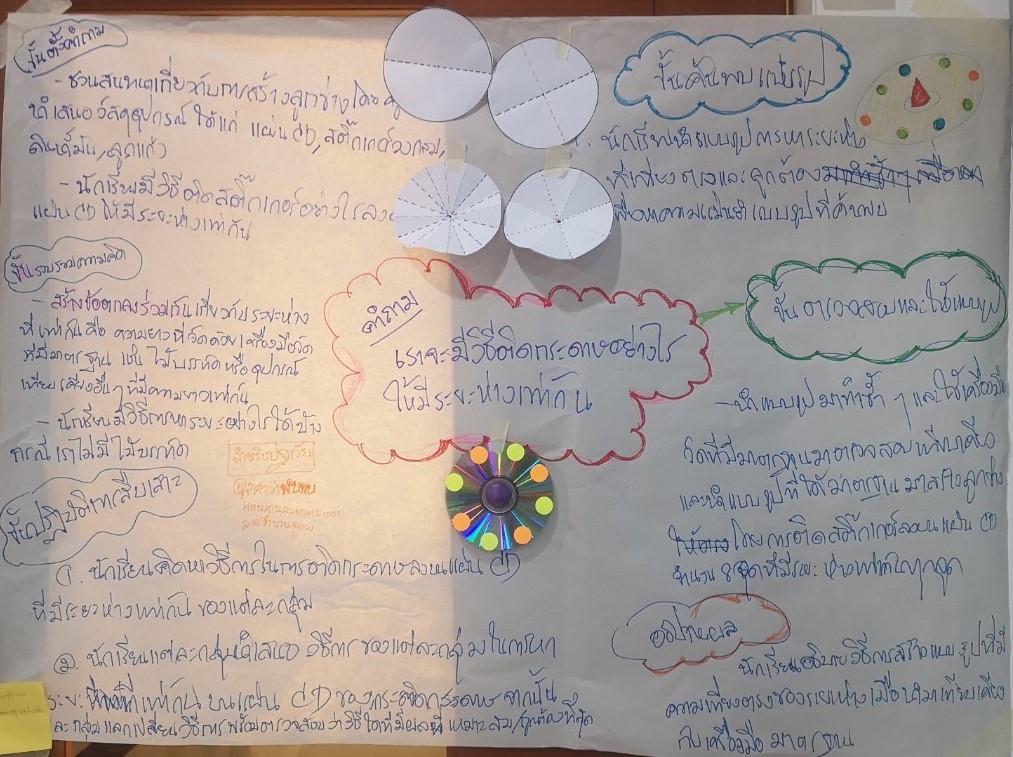 ขั้นตั้งคำถาม
- ชวนสนทนาเกี่ยวกับการสร้างลูกข่างโดย ครู
นำเสนอวัสดุอุปกรณ์ ได้แก่ แผ่น CD, สติ๊กเกอร์วงกลม,
ดินน้ำมัน, ลูกแก้ว
- นักเรียนมีวิธีติดสติ๊กเกอร์อย่างไรลง
แผ่น CD ให้มีระยะห่างเท่ากัน
ขั้นรวบรวมความคิด
- สร้างข้อตกลงร่วมกันเกี่ยวกับระยะห่าง
ที่เท่ากันคือ ความยาวที่วัดด้วยเครื่องมือวัด
ที่มีมาตรฐาน เช่น ไม้บรรทัด หรืออุปกรณ์
เทียบเคียงอื่นๆ ที่มีความยาวเท่ากัน
- นักเรียนมีวิธีการหาระยะอย่างไรได้บ้าง
กรณีเราไม่มีไม้บรรทัด
สำหรับปฐมวัย
ใช้คำว่าพับทบ
ลดจำนวนจุดลง
ขั้นปฏิบัติการสืบเสาะ
①. นักเรียนคิดหาวิธีการในการติดกระดาษลงบนแผ่น CD
ที่มีระยะห่างเท่ากัน ของแต่ละกลุ่ม
②. นักเรียนแต่ละกลุ่มนำเสนอ วิธีการ ของแต่ละกลุ่มในการหา
ระยะ ที่เท่ากัน บนแผ่น CD ของการติดกระดาษ จากนั้น
ละกลุ่มแลกเปลี่ยนวิธีการ พร้อมตรวจสอบว่าวิธีใดที่มีผลที่ เหมาะสม/ถูกต้องที่สุด
คำถาม
เราจะมีวิธีติดกระดาษอย่างไร
ให้มีระยะห่างเท่ากัน
ขั้นค้นพบแบบรูป
นักเรียนนำแบบรูปการหาระยะห่าง
ที่เที่ยงตรงและถูกต้อง
เพื่อหาความแม่นยำแบบรูปที่ค้นพบ
ขั้นตรวจสอบและใช้แบบรูป
- นำแบบรูปมาทำซ้ำๆ และใช้เครื่องมือ
วัดที่มีมาตรฐานมาตรวจสอบเทียบเคียง
และนำแบบรูปที่ได้มาตรฐาน มาสร้างลูกข่าง
โดยการติดสติ๊กเกอร์ลงบนแผ่น CD
จำนวน 8 จุดที่มีระยะห่างเท่ากันทุกจุด
อภิปรายผล
นักเรียนอธิบายวิธีการสร้างแบบรูปที่มี
ความเที่ยงตรงของระยะห่างเมื่อนำมาเทียบเคียง
กับเครื่องมือมาตรฐาน